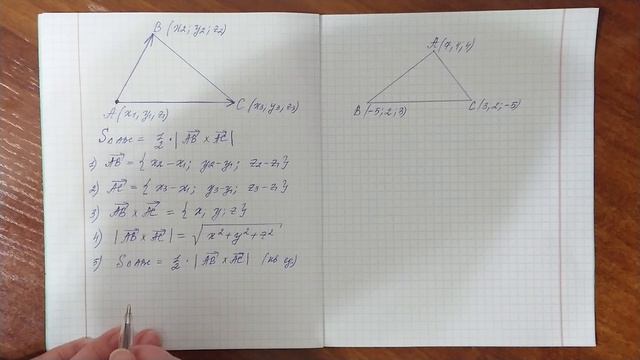 B (x2; y2; z2)
A (x1, y1, z1)
C (x3, y3, z3)
S△ABC = 1/2 · |AB × AC|
1) AB = { x2 - x1; y2 - y1; z2 - z1 }
2) AC = { x3 - x1; y3 - y1; z3 - z1 }
3) AB × AC = { x, y, z }
4) |AB × AC| = √x² + y² + z²
5) S△ABC = 1/2 · |AB × AC| (кв ед)
B(-5; 2; 3)
C(3, 2; -5)